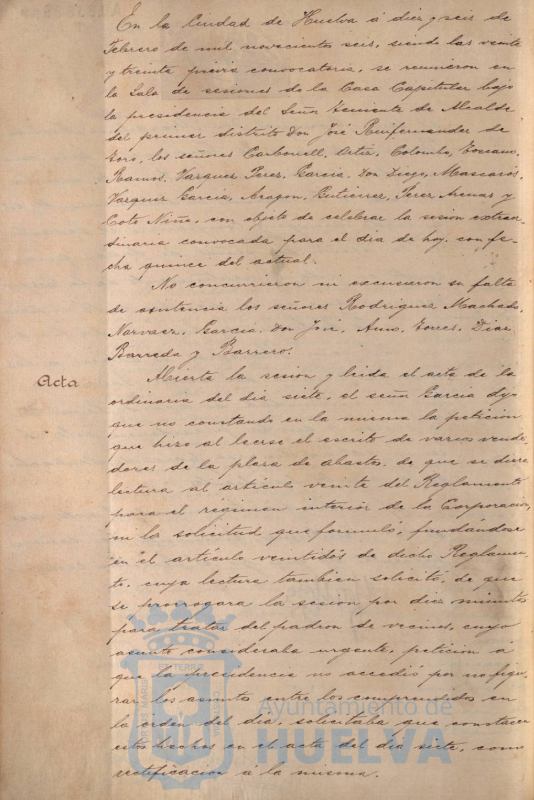 En la Ciudad de Huelva á diez y seis de
Febrero de mil novecientos seis, siendo las veinte
y treinta, prévia convocatoria, se reunieron en
la Sala de sesiones de la Casa Capitular bajo
la presidencia del Señor Teniente de Alcalde
del primer distrito Don José Reifernander de
Toro, los señores Carbonell, Ortiz, Colombo, Toscano,
Ramos, Vazquez Perez, Garcia Don Diego, Mascarós,
Vazquez Garcia, Aragon, Gutierrez, Perez Arenas y
Coto Niño, con objeto de celebrar la sesion extraor-
dinaria convocada para el dia de hoy, con fe-
cha quince del actual.
No concurrieron ni escusaron su falta
de asistencia los señores Rodriguez Machado,
Narvaez, Garcia Don José, Torres, Diaz,
Barreda y Barrero.
Acta
Abierta la sesion y leida el acta de la
ordinaria del dia siete, el señor Garcia dijo
que no constando en la misma la peticion
que hizo al leerse el escrito de varios vende-
dores de la plaza de abastos, de que se diera
lectura al artículo veinte del Reglamento
para el regimen interior de la Corporacion,
ni la solicitud que formuló, fundándose
en el artículo veintidós de dicho Reglamen-
to, cuya lectura tambien solicitó, de que
se prorrogara la sesion por diez minutos
para tratar del padron de vecinos, cuyo
asunto consideraba urgente, peticion á
que la presidencia no accedió por no figu-
rar los asuntos entre los comprendidos en
la orden del dia, solicitaba que constasen
estos hechos en el acta del dia siete, como
rectificacion á la misma.
Ayuntamiento de
HUELVA